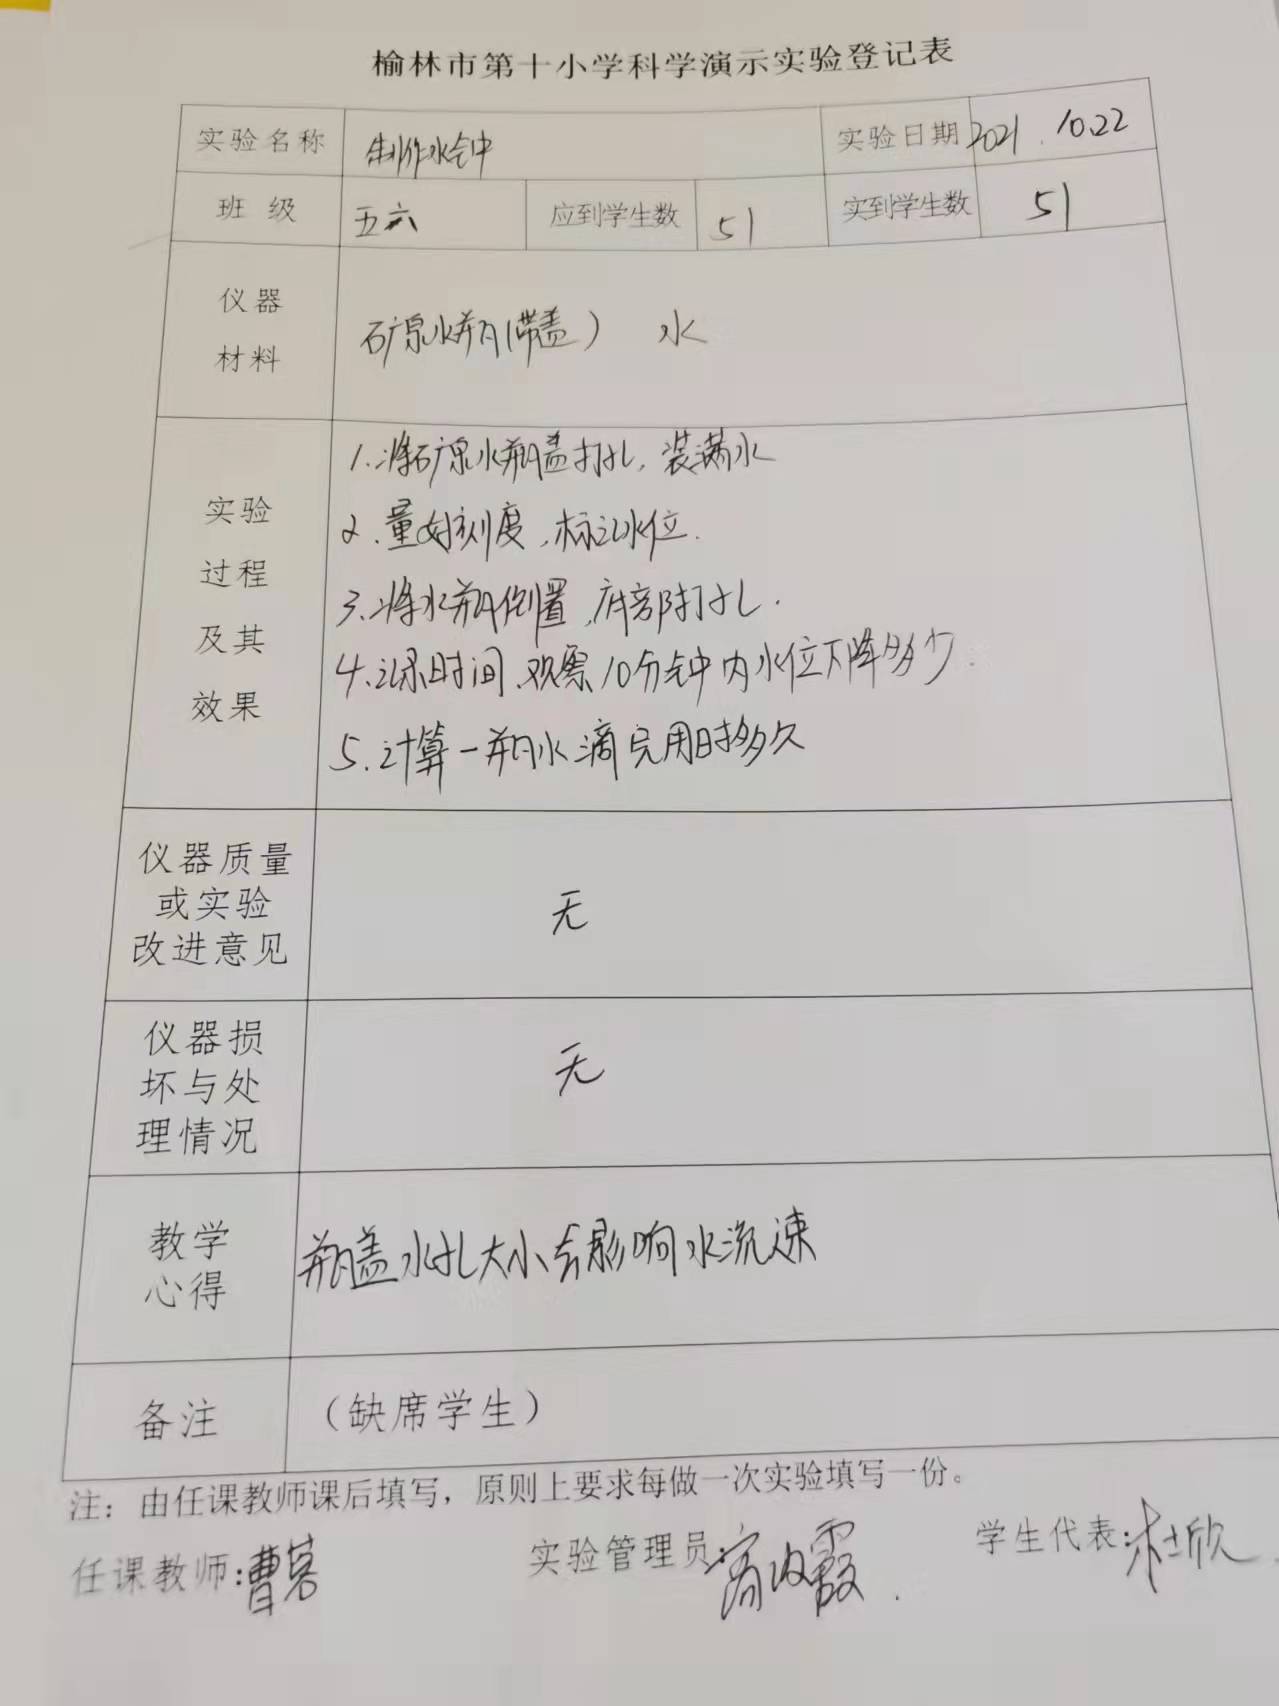 榆林市第十小学科学演示实验登记表
实验名称 制作水钟 实验日期 2021.10.22
班级 五六 应到学生数 51 实到学生数 51
仪器
材料
矿泉水瓶(带盖) 水
实验
过程
及其
效果
1.将矿泉水瓶盖打孔,装满水
2.量好刻度,标记水位.
3.将水瓶倒置,底部打孔.
4.记录时间.观察10分钟内水位下降多少.
5.计算一瓶水滴完用时多久
仪器质量
或实验
改进意见
无
仪器损
坏与处
理情况
无
教学
心得
瓶盖水孔大小会影响水流速
备注 (缺席学生)
注:由任课教师课后填写,原则上要求每做一次实验填写一份。
任课教师:曹 实验管理员: 霞 学生代表:杜欣